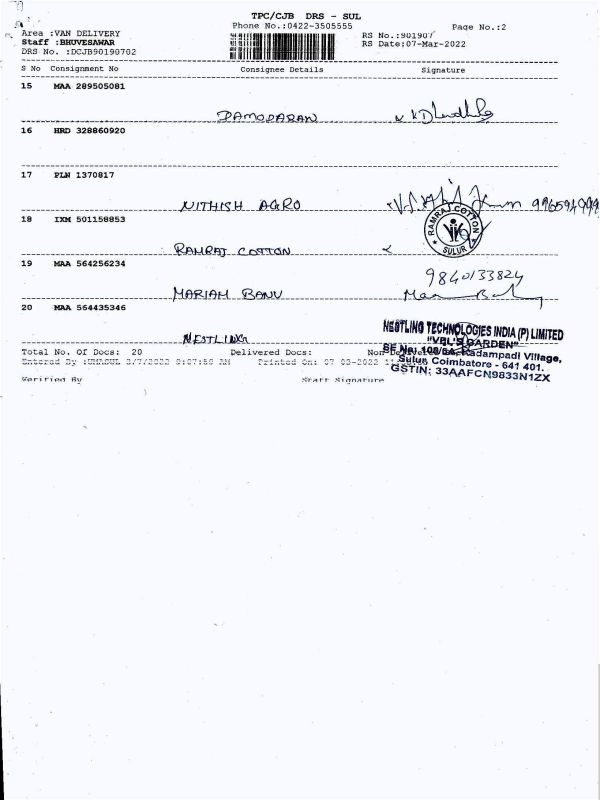 TPC/CJB DRS - SUL
Phone No.:0422-3505555 Page No.:2
Area :VAN DELIVERY RS No.:901907
Staff :BHUVESAWAR RS Date:07-Mar-2022
DRS No. :DCJB90190702
S No Consignment No Consignee Details Signature
15 MAA 289505081
DAMODARAN
16 HRD 328860920
17 PLN 1370817
NITHISH AGRO
18 IXM 501158853
RAMRAJ COTTON
SULUR
RAMRAJ COTTON
19 MAA 564256234
9840133824
MARIAM BANU
20 MAA 564435346
NESTLING
NESTLING TECHNOLOGIES INDIA (P) LIMITED
"VBL'S GARDEN"
Total No. Of Docs: 20 Delivered Docs:
SF No: 108/6A, Kadampadi Village,
Sulur, Coimbatore - 641 401.
GSTIN: 33AAFCN9833N1ZX
Printed On: 07 03-2022
Verified By Staff Signature